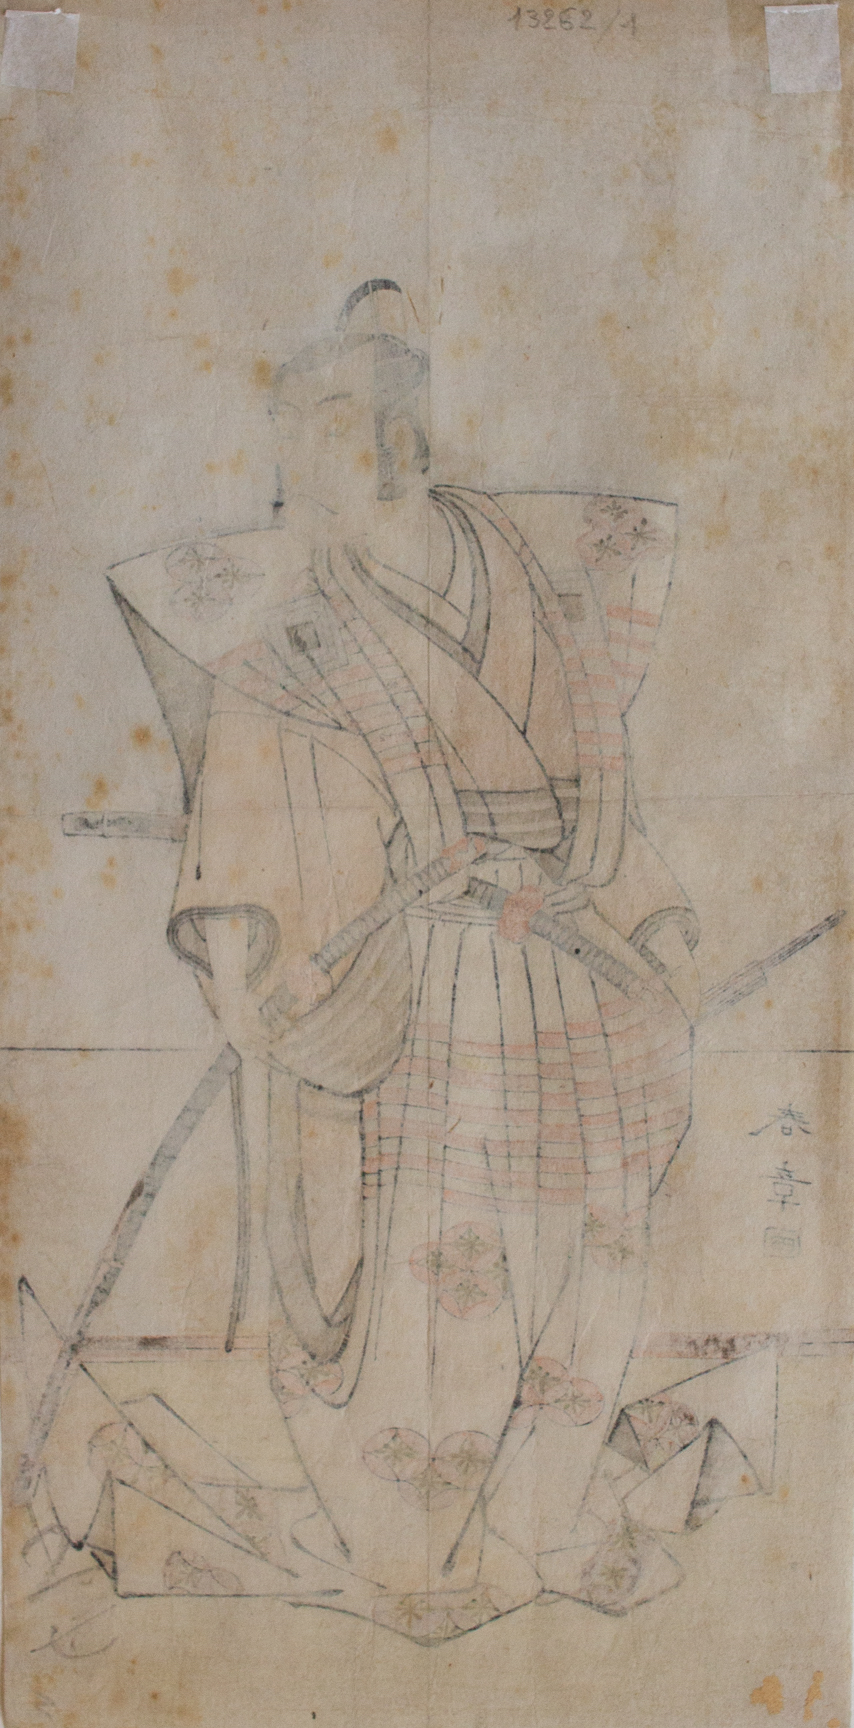 13262/1
春章画